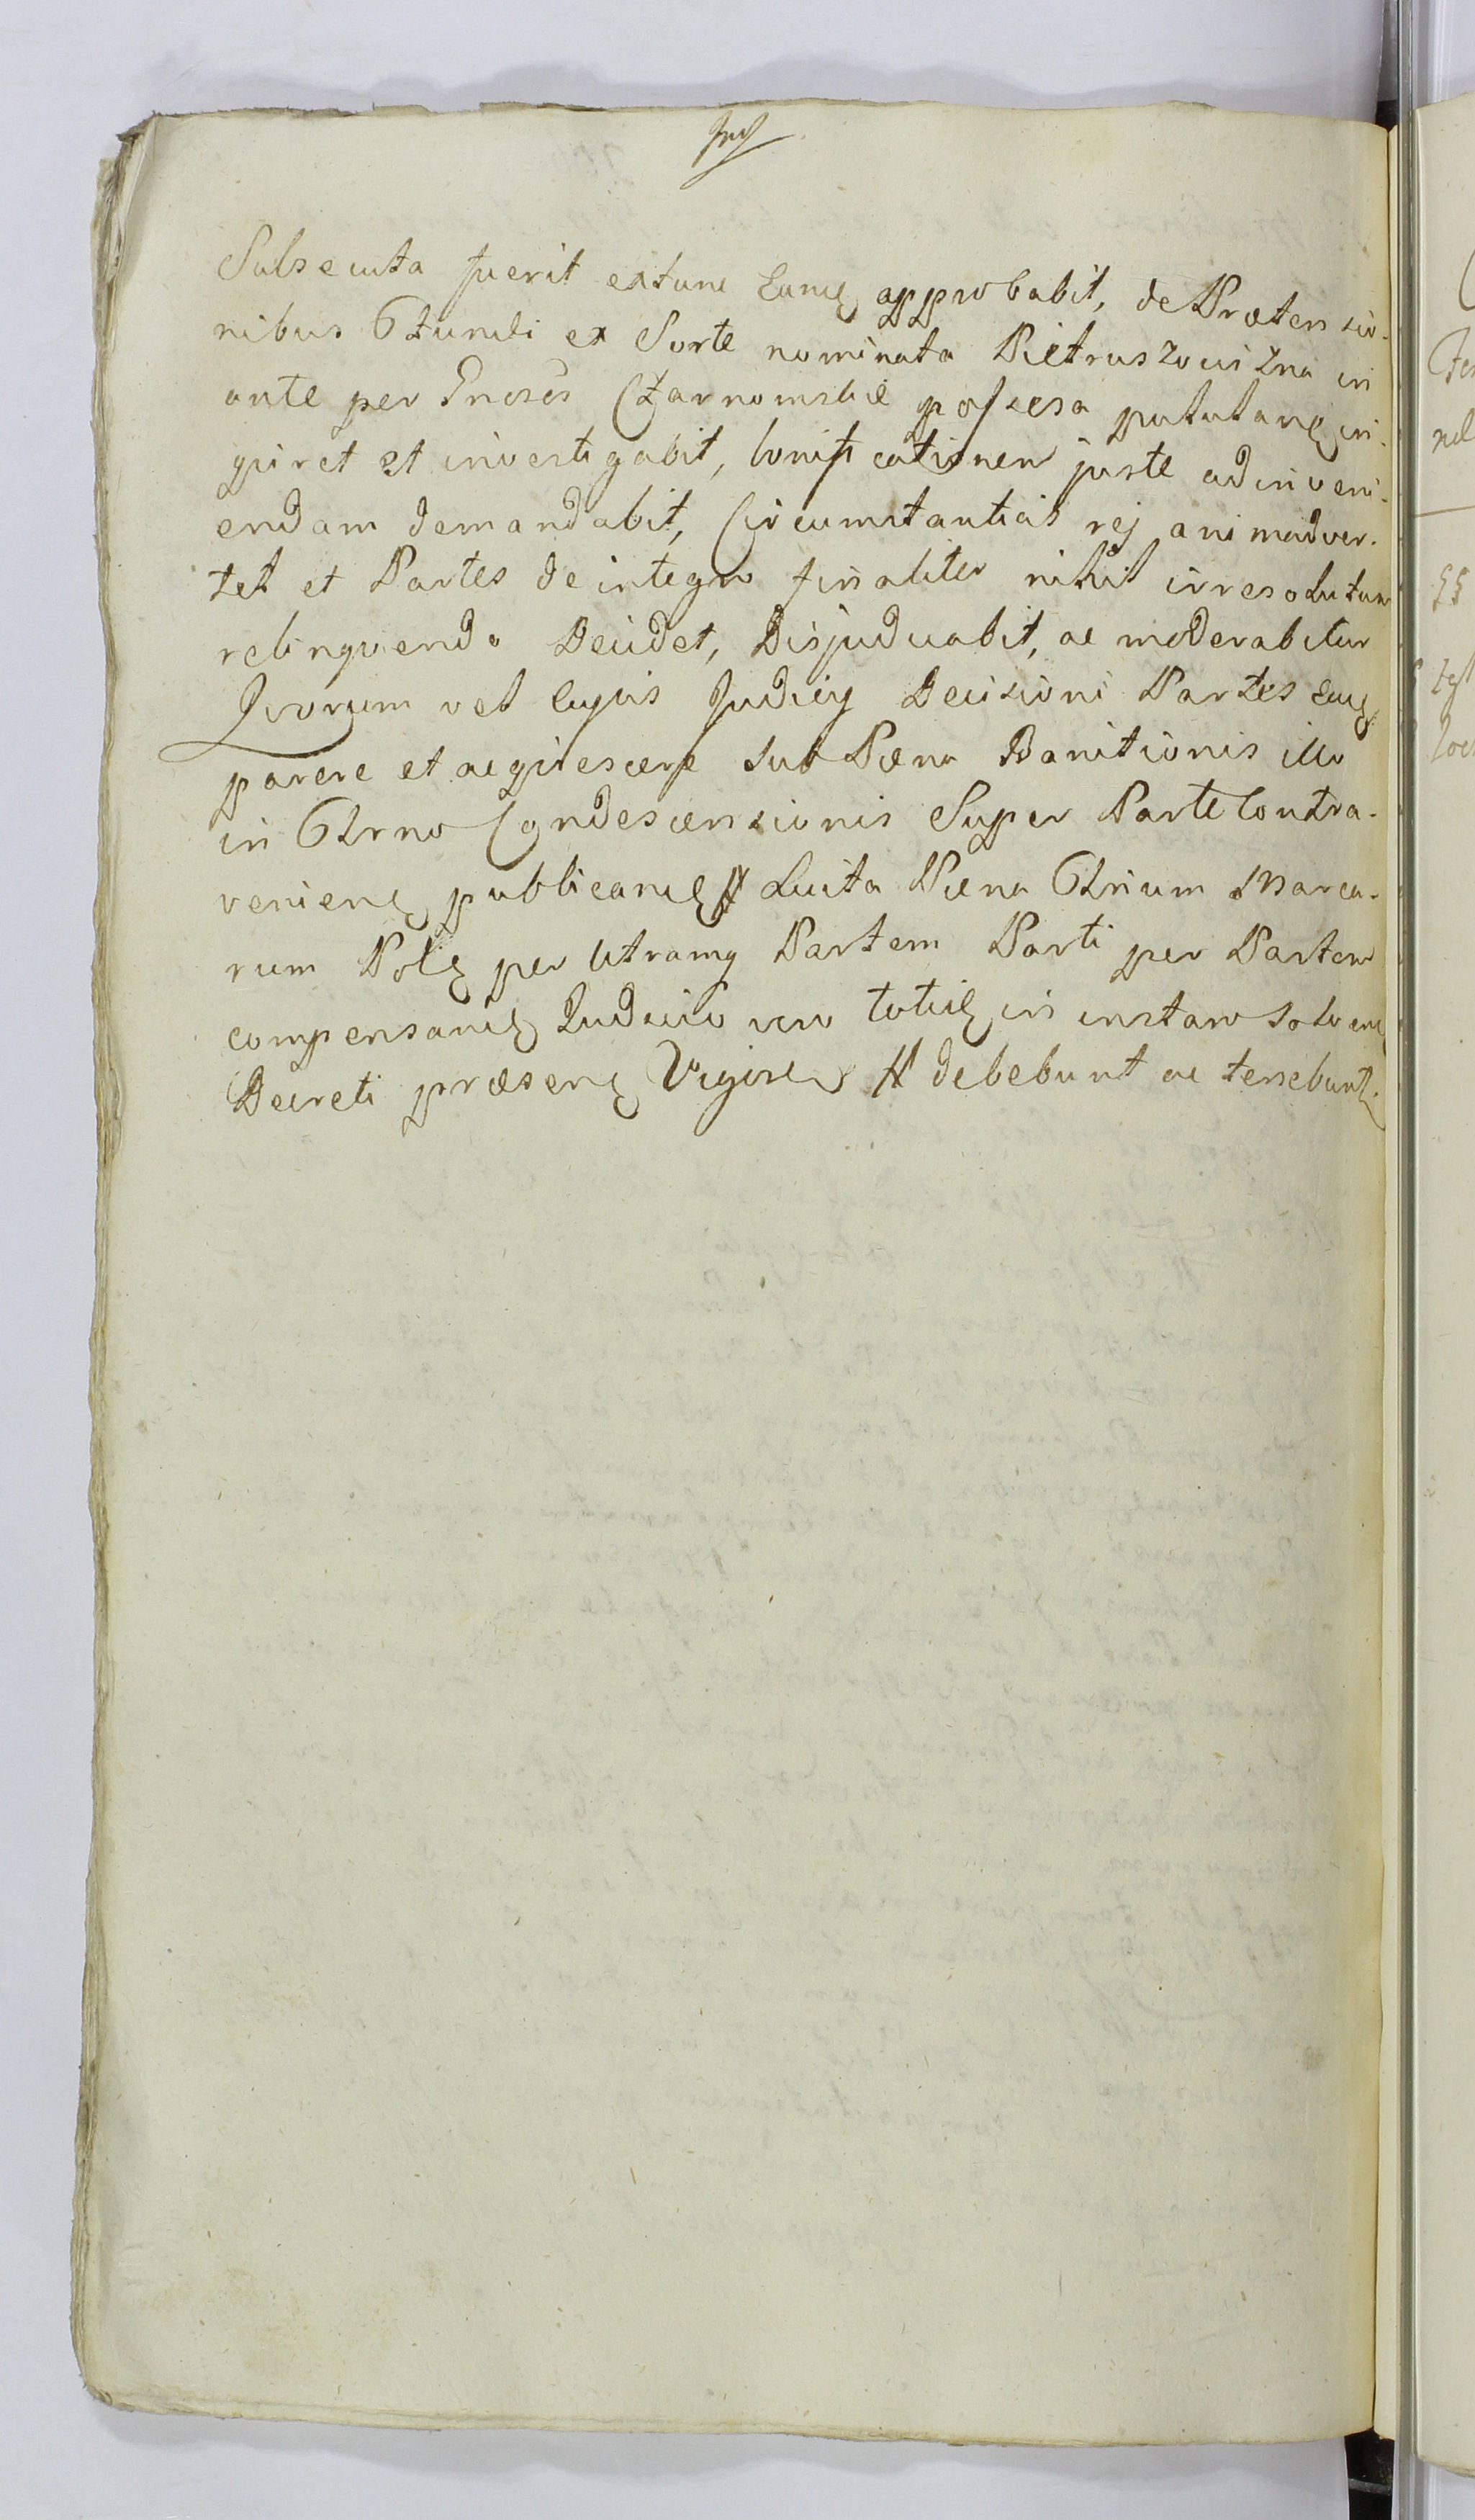 Subsecuta fuerit extunc Eanq approbabit, de Prætensio-
nibus Ozunili ex Sorte nominata Pietruszowizna in
ante per Gnosos Czarnomskie possessa pututanq in-
quiret et investigabit, bonificationem juste adinveni-
endam demandabit, Circumstantias rej animadver-
tet et Partes de integro finaliter nihil irresolutum
relinquendo Decidet, Disjudicabit, ac moderabitur
Qvorum vel cujus Judicij Decisioni Partes eaq
parere et acquiescere sub Pœna Banitionis illo
in Otrno Condescensionis Super Parte Contra-
venienq publicanq Luita Pœna Otrium Marca-
rum Polq per Utramq Partem Parti per Partem
compensanq Judicio vero totiq in instanr solvenq
Decreti præsenq Vigore debebunt ac tenebunt.